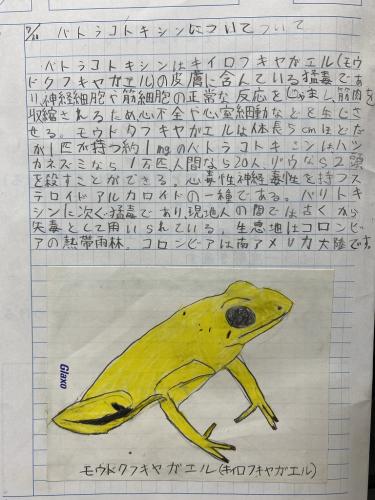 バトラコトキシンについてついて
バトラコトキシンはキイロフキヤガエル(モウ
ドクフキヤガエル)の皮膚に含んでいる猛毒であ
り、神経細胞や筋細胞の正常な反応をじゃまし、筋肉を
収縮されるため心不全や心室細動などを生じさ
せる。モウドクフキヤガエルは体長5cmほどだ
が1匹が持つ約1mgのバトラコトキシンはハツ
カネズミなら1万匹人間なら20人、ゾウなら2頭
を殺すことができる。心毒性神経毒性を持つス
テロイドアルカロイドの一種である。パリトキ
シンに次ぐ猛毒であり、現地人の間では古くから
矢毒として用いられている。生息地はコロンビ
アの熱帯雨林。コロンビアは南アメリカ大陸です。
Glaxo
モウドクフキヤガエル(キイロフキヤガエル)